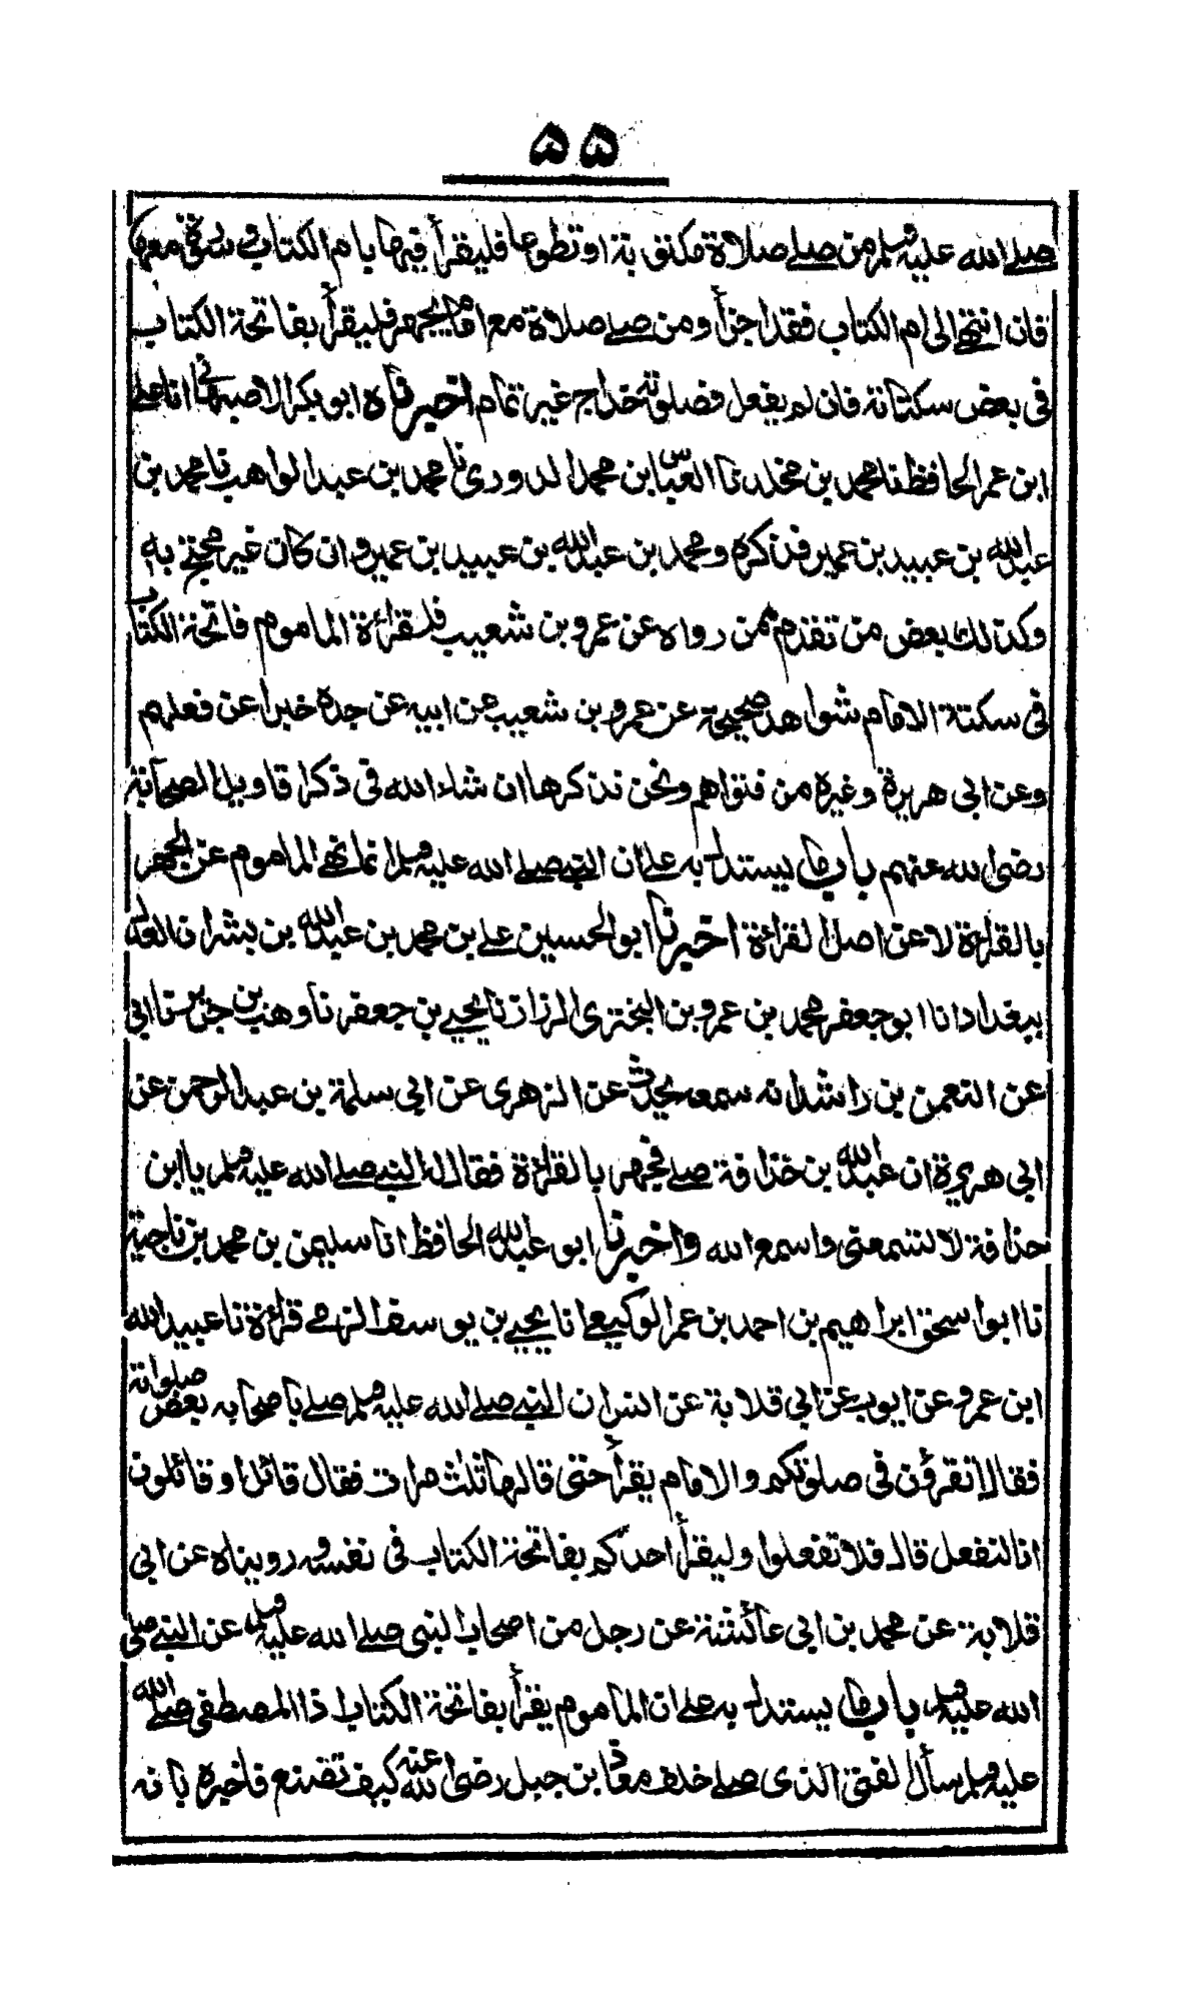 ۵۵
صلے الله عليه وسلم من صلے صلاة مكتوبة او تطوعا فليقرأ فيها بام الكتاب وسورة معها
فان انتهى الى ام الكتاب فقد اجزأ ومن صلے صلاة مع امام يجهر فليقرأ بفاتحة الكتاب
فى بعض سكتاته فان لم يفعل فصلوته خداج غير تمام اخبرناه ابو بكر الاصبهانى انا علے
ابن عمر الحافظ نا محمد بن مخلد نا العباس بن محمد الدورى نا محمد بن عبد الواهب نا محمد بن
عبد الله بن عبيد بن عمير فذكره ومحمد بن عبد الله بن عبيد بن عمير وان كان غير محتج به
وكذلك بعض من تقدم ممن رواه عن عمرو بن شعيب فلقراءة الماموم فاتحة الكتاب
فى سكتة الامام شواهد صحيحة عن عمرو بن شعيب عن ابيه عن جده خبرا عن فعلهم
وعن ابى هريرة وغيره من فتواهم ونحن نذكرها ان شاء الله فى ذكر اقاويل الصحابة
رضى الله عنهم باب ما يستدل به على ان النبى صلے الله عليه وسلم انما نهى الماموم عن الجهر
بالقراءة لا عن اصل القراءة اخبرنا ابو الحسين على بن محمد بن عبد الله بن بشران العدل
ببغداد انا ابو جعفر محمد بن عمرو بن البخترى الرزاز نا يحيى بن جعفر نا وهب بن جرير نا ابى
عن النعمن بن راشد انه سمعه يحدث عن الزهرى عن ابى سلمة بن عبد الرحمن عن
ابى هريرة ان عبد الله بن حذافة صلے فجهر بالقراءة فقال له النبى صلے الله عليه وسلم يا ابن
حذافة لا تسمعنى واسمع الله واخبرنا ابو عبد الله الحافظ انا سليمن بن محمد بن ناجية
نا ابو اسحق ابراهيم بن احمد بن عمر الوكيعى انا يحيى بن يوسف الزمى قراءة نا عبيد الله
ابن عمرو عن ايوب عن ابى قلابة عن انس ان النبى صلے الله عليه وسلم صلے باصحابه بعض صلواته
فقال اتقرؤن فى صلوتكم والامام يقرأ حتى قالها ثلث مرات فقال قائل او قائلون
انا لنفعل قال فلا تفعلوا وليقرأ احدكم بفاتحة الكتاب فى نفسه ورويناه عن ابى
قلابة عن محمد بن ابى عائشة عن رجل من اصحاب النبى صلے الله عليه وسلم عن النبى صلى
الله عليه وسلم باب ما يستدل به على ان الماموم يقرأ بفاتحة الكتاب اذ المصطفى صلى الله
عليه وسلم سأل الفتى الذى صلے خلف معاذ بن جبل رضى الله عنه كيف تصنع فاخبره بانه